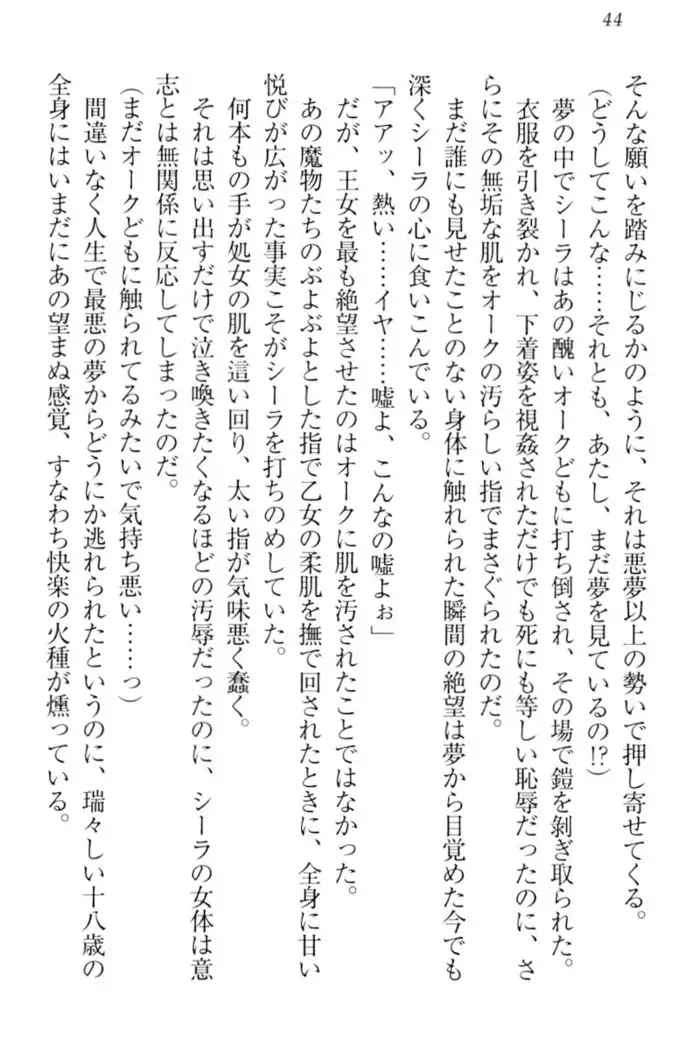 44
そんな願いを踏みにじるかのように、それは悪夢以上の勢いで押し寄せてくる。
(どうしてこんな……それとも、あたし、まだ夢を見ているの!?)
夢の中でシーラはあの醜いオークどもに打ち倒され、その場で鎧を剥ぎ取られた。
衣服を引き裂かれ、下着姿を視姦されただけでも死にも等しい恥辱だったのに、さ
らにその無垢な肌をオークの汚らしい指でまさぐられたのだ。
まだ誰にも見せたことのない身体に触れられた瞬間の絶望は夢から目覚めた今でも
深くシーラの心に食いこんでいる。
「アアッ、熱い……イヤ……嘘よ、こんなの嘘よぉ」
だが、王女を最も絶望させたのはオークに肌を汚されたことではなかった。
あの魔物たちのぶよぶよとした指で乙女の柔肌を撫で回されたときに、全身に甘い
悦びが広がった事実こそがシーラを打ちのめしていた。
何本もの手が処女の肌を這い回り、太い指が気味悪く蠢く。
それは思い出すだけで泣き喚きたくなるほどの汚辱だったのに、シーラの女体は意
志とは無関係に反応してしまったのだ。
(まだオークどもに触られてるみたいで気持ち悪い……っ)
間違いなく人生で最悪の夢からどうにか逃れられたというのに、瑞々しい十八歳の
全身にはいまだにあの望まぬ感覚、すなわち快楽の火種が燻っている。